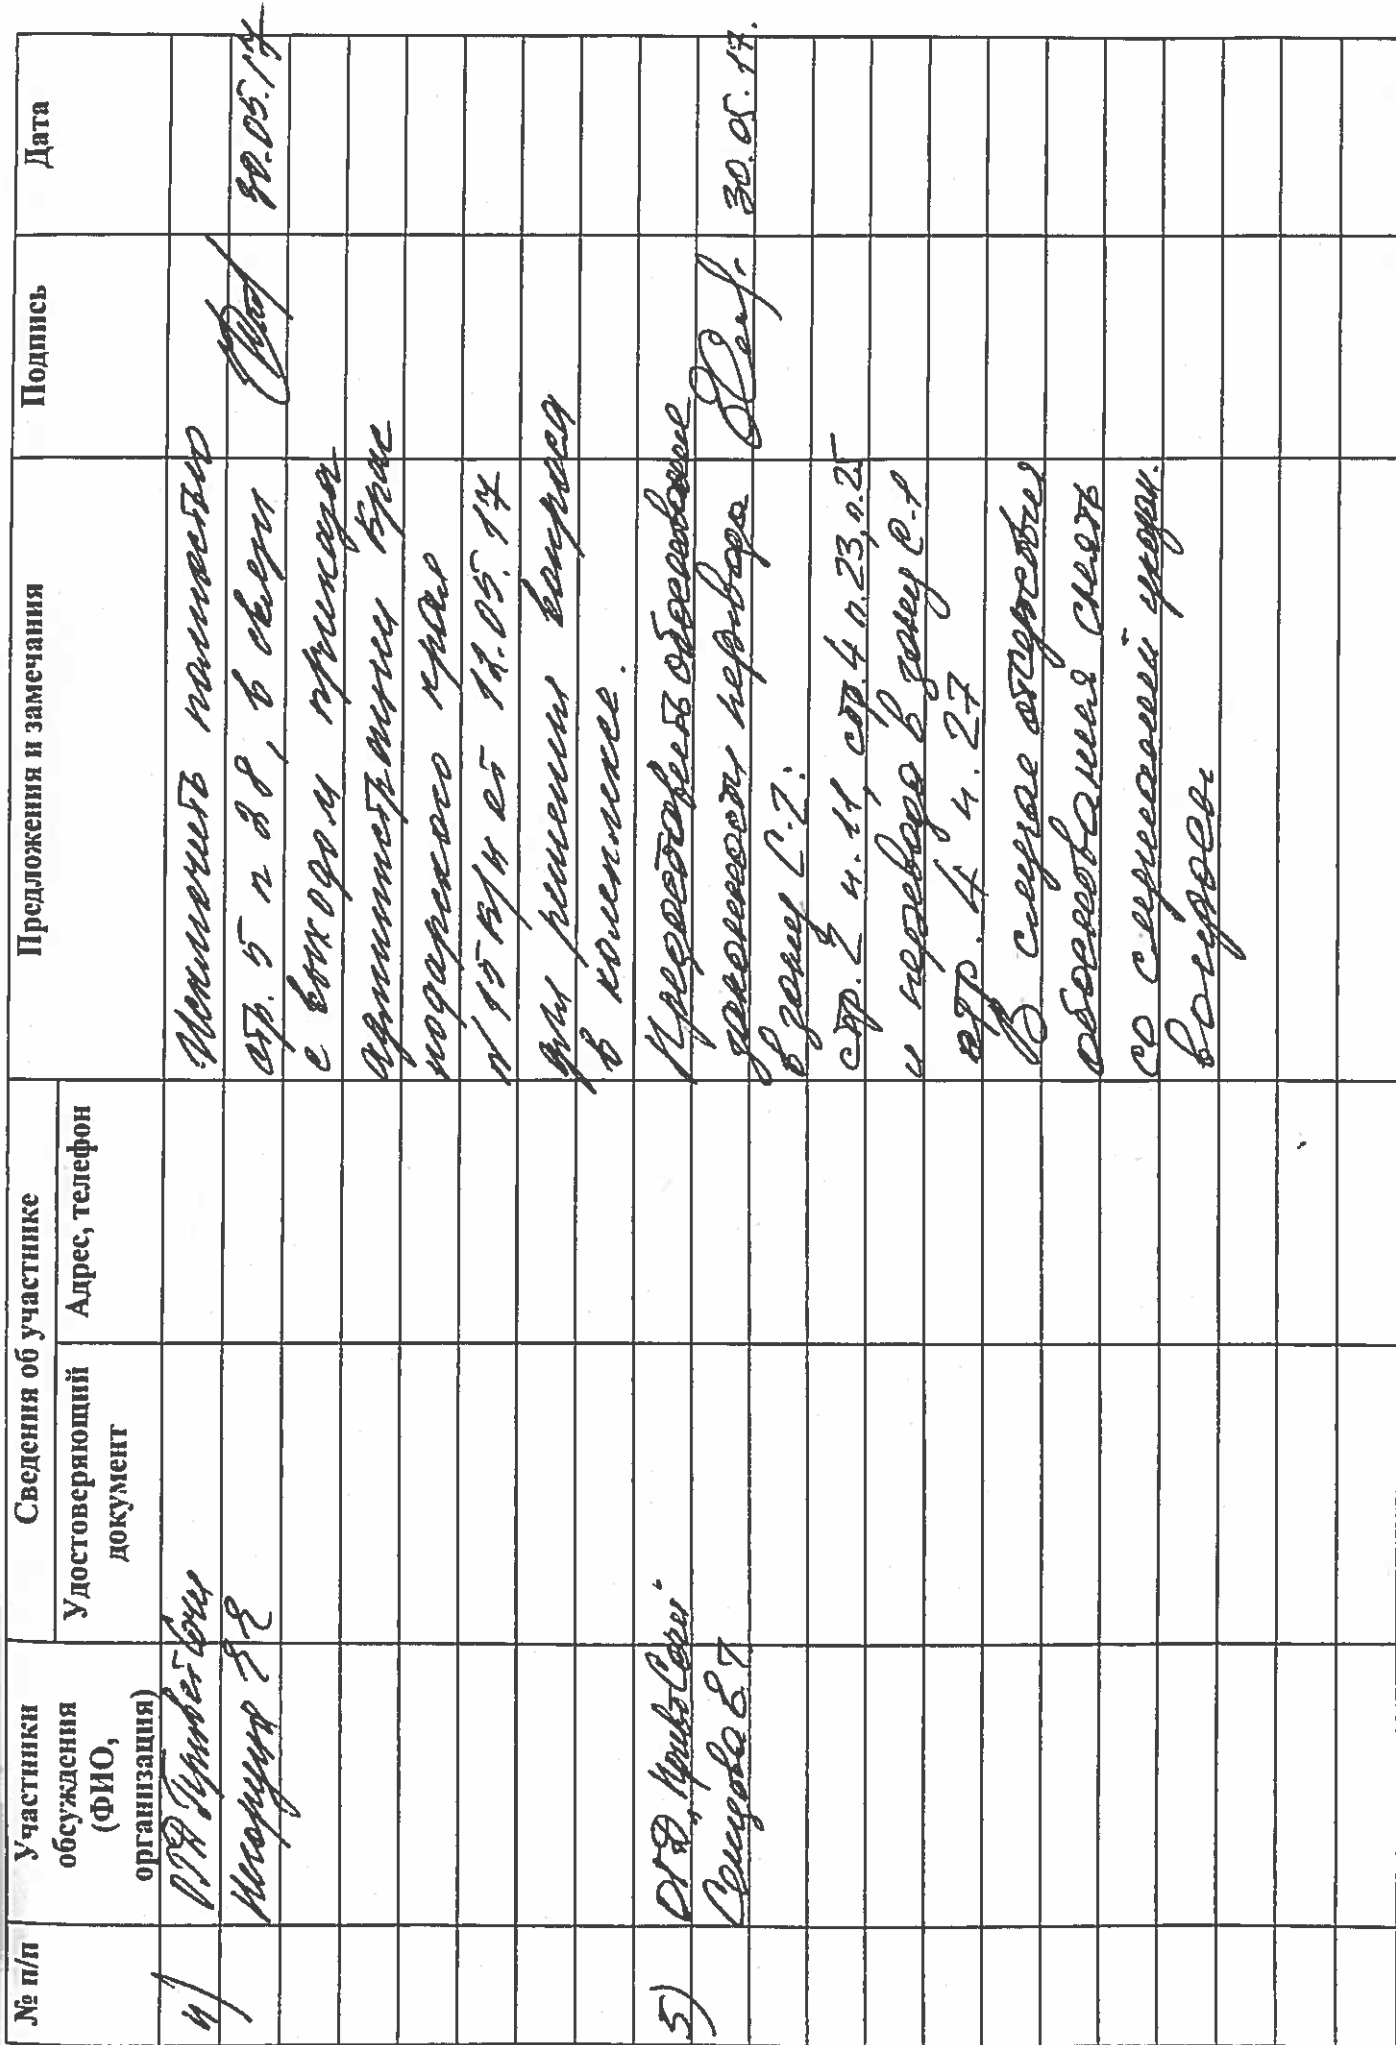 № п/п
Участники обсуждения (ФИО, организация)
Сведения об участнике
Удостоверяющий документ
Адрес, телефон
Предложения и замечания
Подпись
Дата
4) ОГД Привет Сочи Исключить полностью
стр. 5 п 28, в связи 30.05.17
с выходом приказа
администрации Крас
нодарского края
от 12.05.17
для решения вопроса
в комплексе.
5) ОГД "Привет Сочи" Предоставить обоснование
Сенцова В.7 законности перевода 30.05.17.
в зону С-2:
стр. 2 п. 11, стр. 4 п. 23, п. 25
и перевода в зону С-1
стр. 4 п. 27
В случае отсутствия
обоснования снять
со слушаний